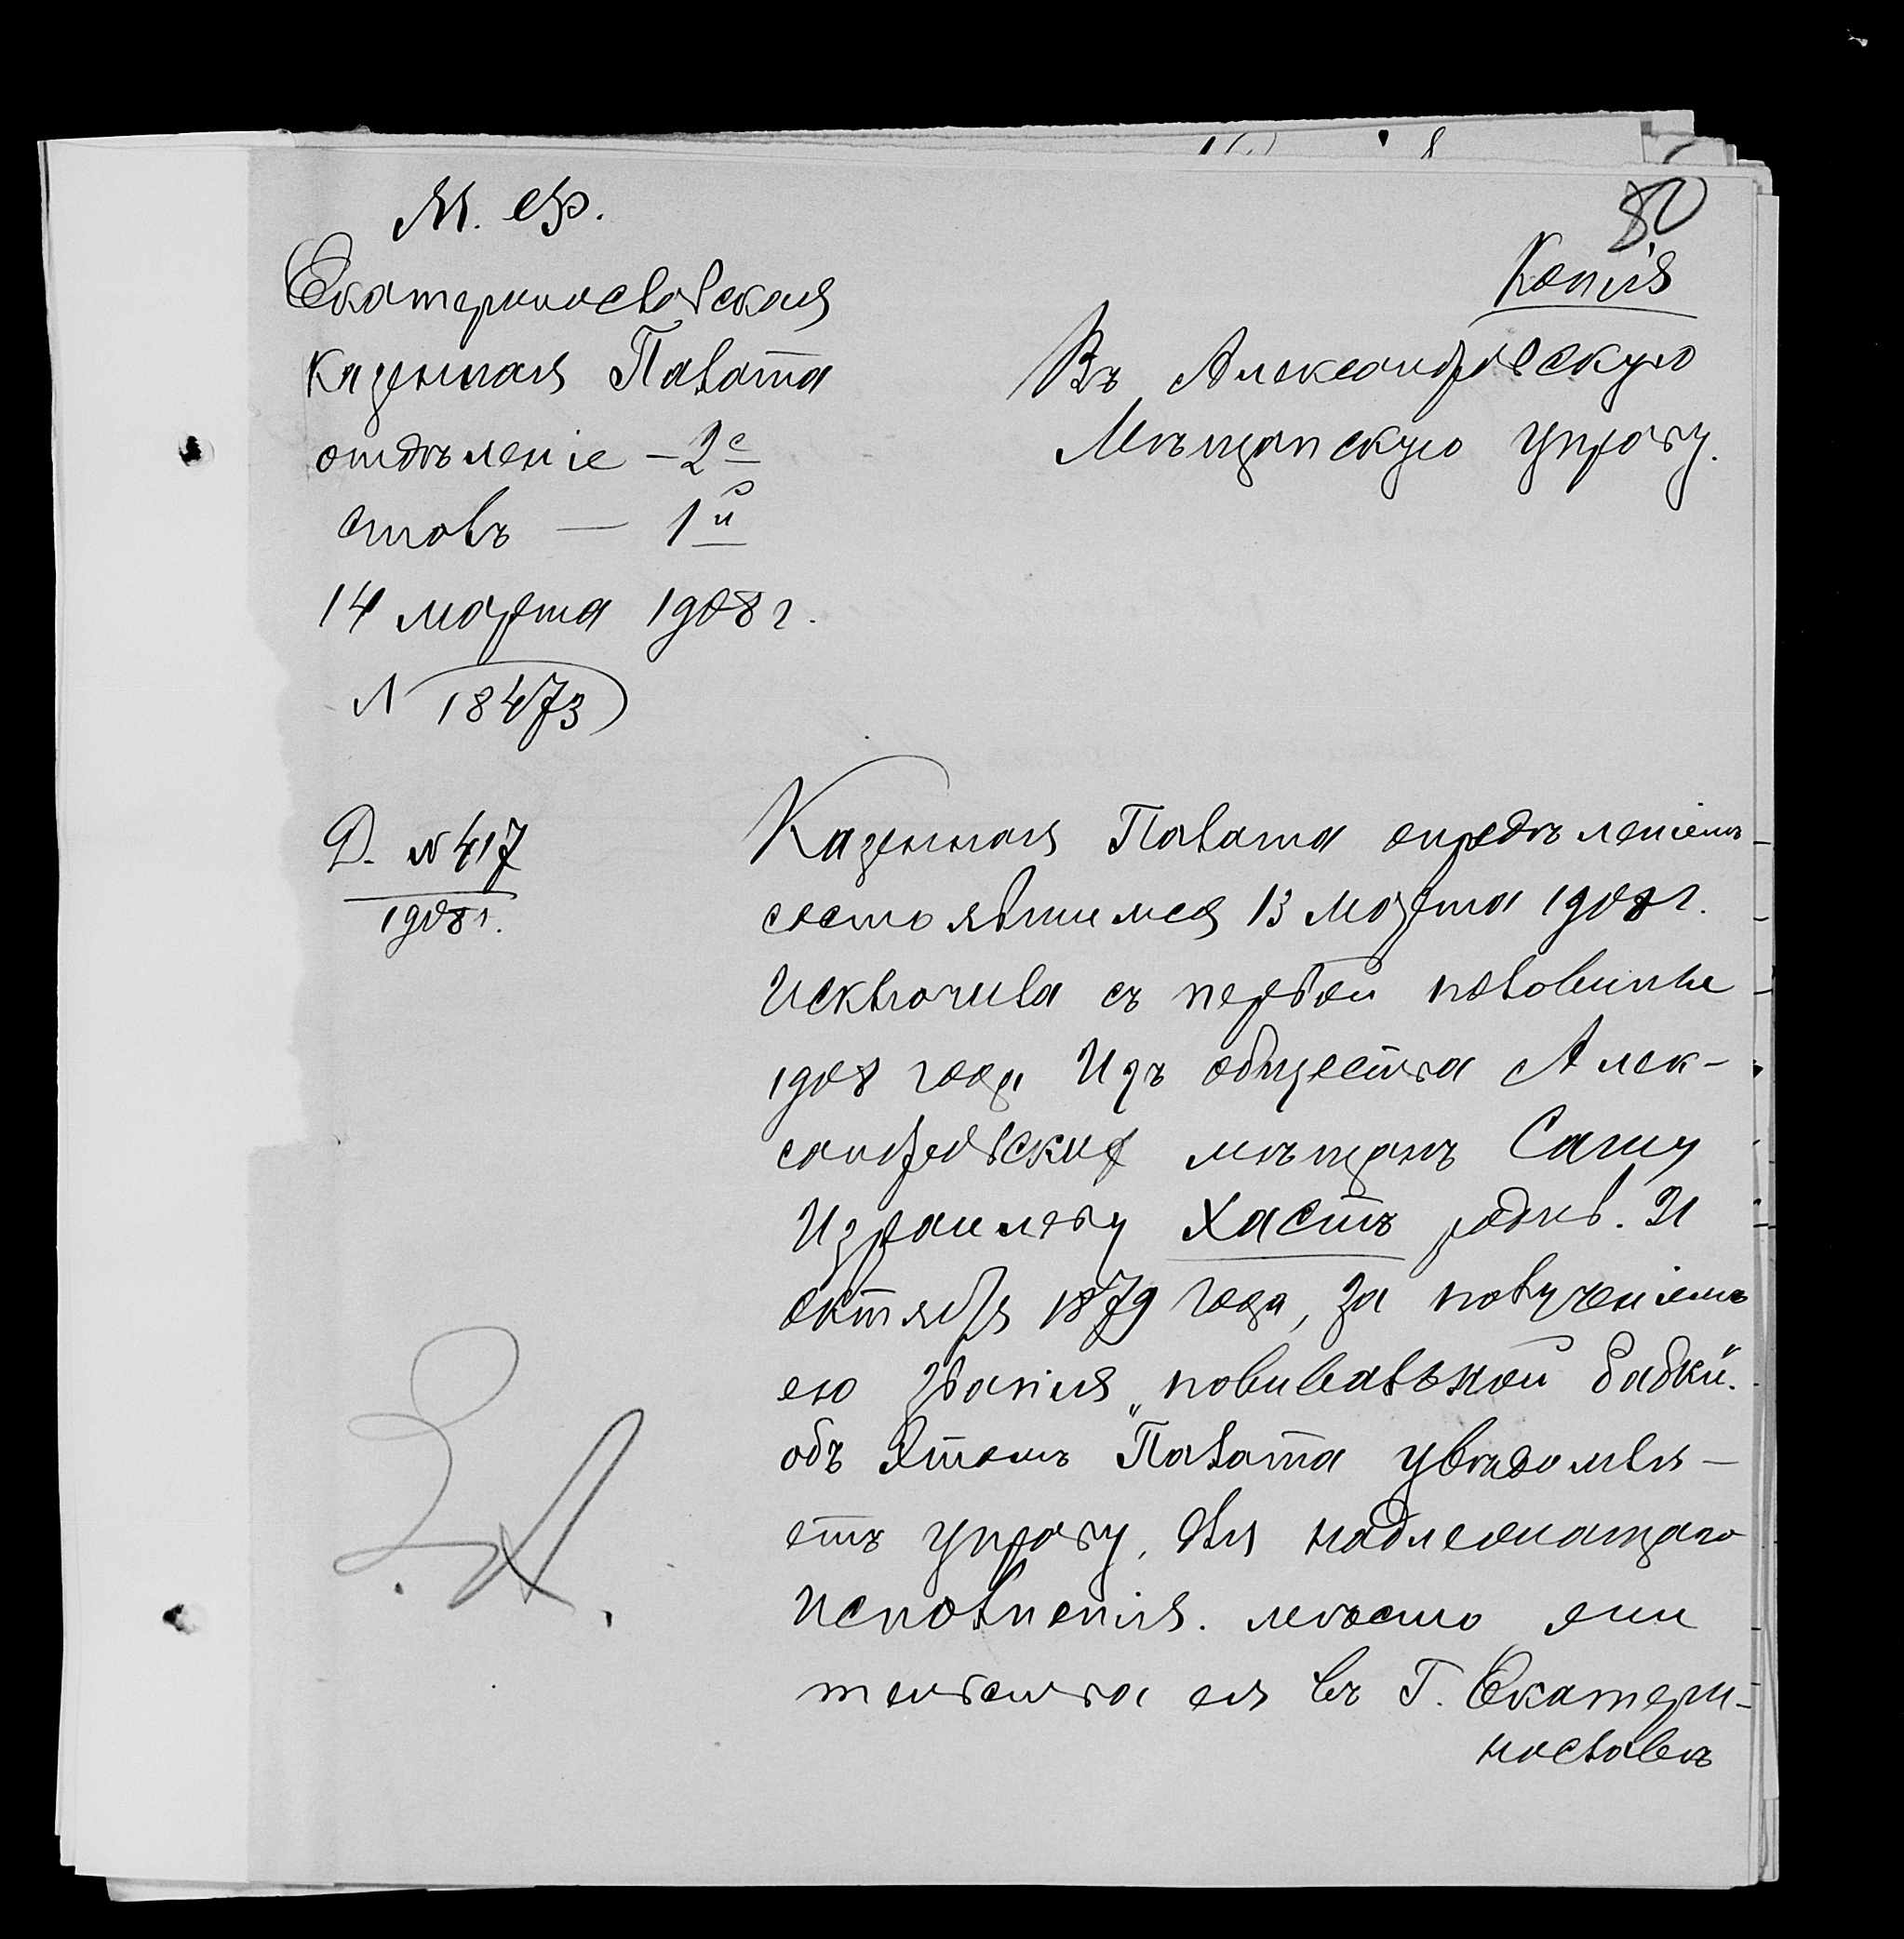 М. Ф.
Екатеринославская
Казенная Палата
отдѣленіе – 2е
столъ — 1й
14 марта 1908 г.
N 18473
Д. N 417
1908 г.
80
Копія
Въ Александровскую
Мѣщанскую Управу.
Казенная Палата опредѣленіемъ
состоявшимся 13 Марта 1908 г.
Исключила съ первой половины
1908 года Изъ общества Алек-
сандровскихъ мѣщанъ Сашу
Израилеву Хастъ родив. 21
октября 1879 года, за полученіемъ
ею званія „повивальной бабки".
объ Этомъ Палата увѣдомля-
етъ управу, для надлежащаго
Исполненія. мѣсто жи
тельства ея въ Г. Екатери-
нославѣ